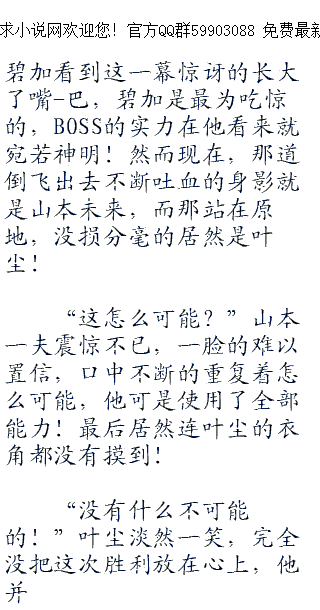 求小说网欢迎您！官方QQ群59903088 免费最新
碧加看到这一幕惊讶的长大
了嘴-巴，碧加是最为吃惊
的，BOSS的实力在他看来就
宛若神明！然而现在，那道
倒飞出去不断吐血的身影就
是山本未来，而那站在原
地，没损分毫的居然是叶
尘！
“这怎么可能？”山本
一夫震惊不已，一脸的难以
置信，口中不断的重复着怎
么可能，他可是使用了全部
能力！最后居然连叶尘的衣
角都没有摸到！
“没有什么不可能
的！”叶尘淡然一笑，完全
没把这次胜利放在心上，他
并